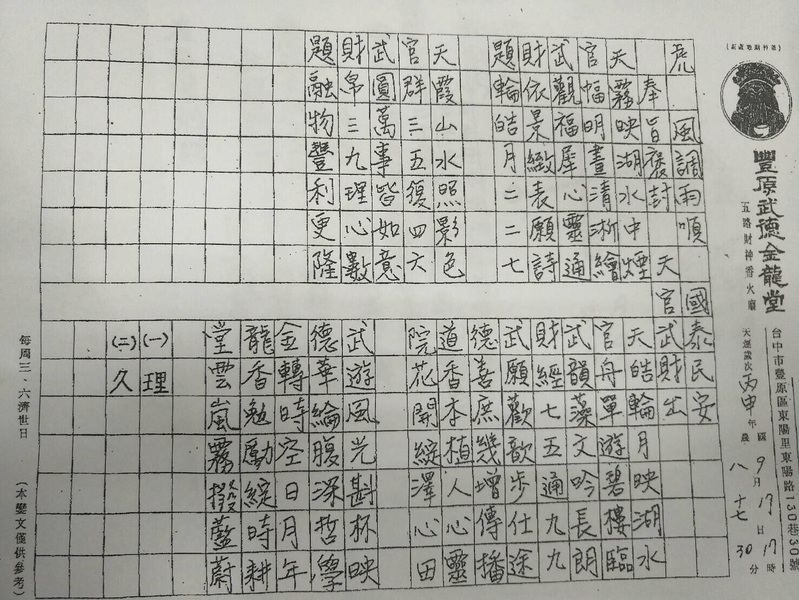 豐原武德金龍堂
五路財神香火廟
台中市豐原區東陽里東陽路130巷30號
天運歲次丙申年農八十七
國9月17日17時30分
虎風調雨順國泰民安
奉旨褒封天官武財出
天霧映湖水中煙
官幅明畫清淅繪
武觀福犀心靈通
財依景緻表願詩
題輪皓月二二七
天霞山水照影色
官群三五復四六
武圓萬事皆如意
財帛三九理心數
題融物豐利更隆
天皓輪月映湖水
官舟單遊碧樓臨
武韻藻文吟長朗
財經七五通九九
武願歡歆步仕途
德善庶幾增傳播
道香本植人心靈
院花開綻澤心田
武遊風光斟杯映
德華綸腹深哲學
金轉時空日月年
龍香勉勵綻時耕
堂雲嵐霧撥藍蔚
(一)理
(二)久
每周三、六濟世日
(本鑾文僅供參考)